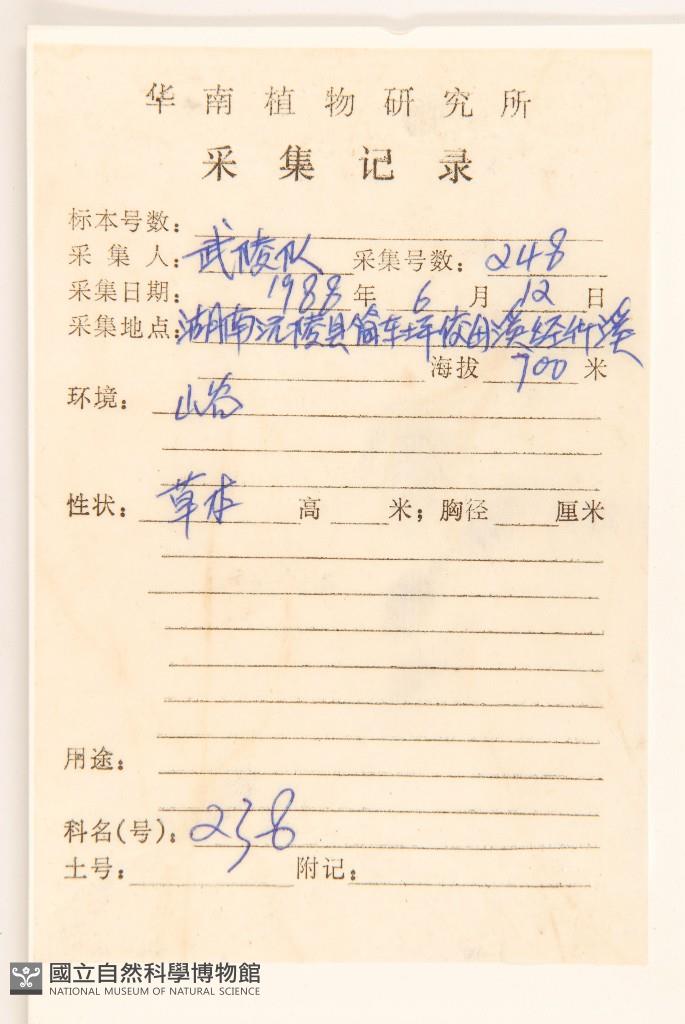 华南植物研究所
采集记录
标本号数:
采集人: 武陵队 采集号数: 248
采集日期: 1988 年 6 月 12 日
采集地点: 湖南沅陵县筲车坪 田溪经竹溪
海拔 700 米
环境: 山谷
性状: 草本 高 米; 胸径 厘米
用途:
科名(号): 238
土号: 附记:
國立自然科學博物館
NATIONAL MUSEUM OF NATURAL SCIENCE